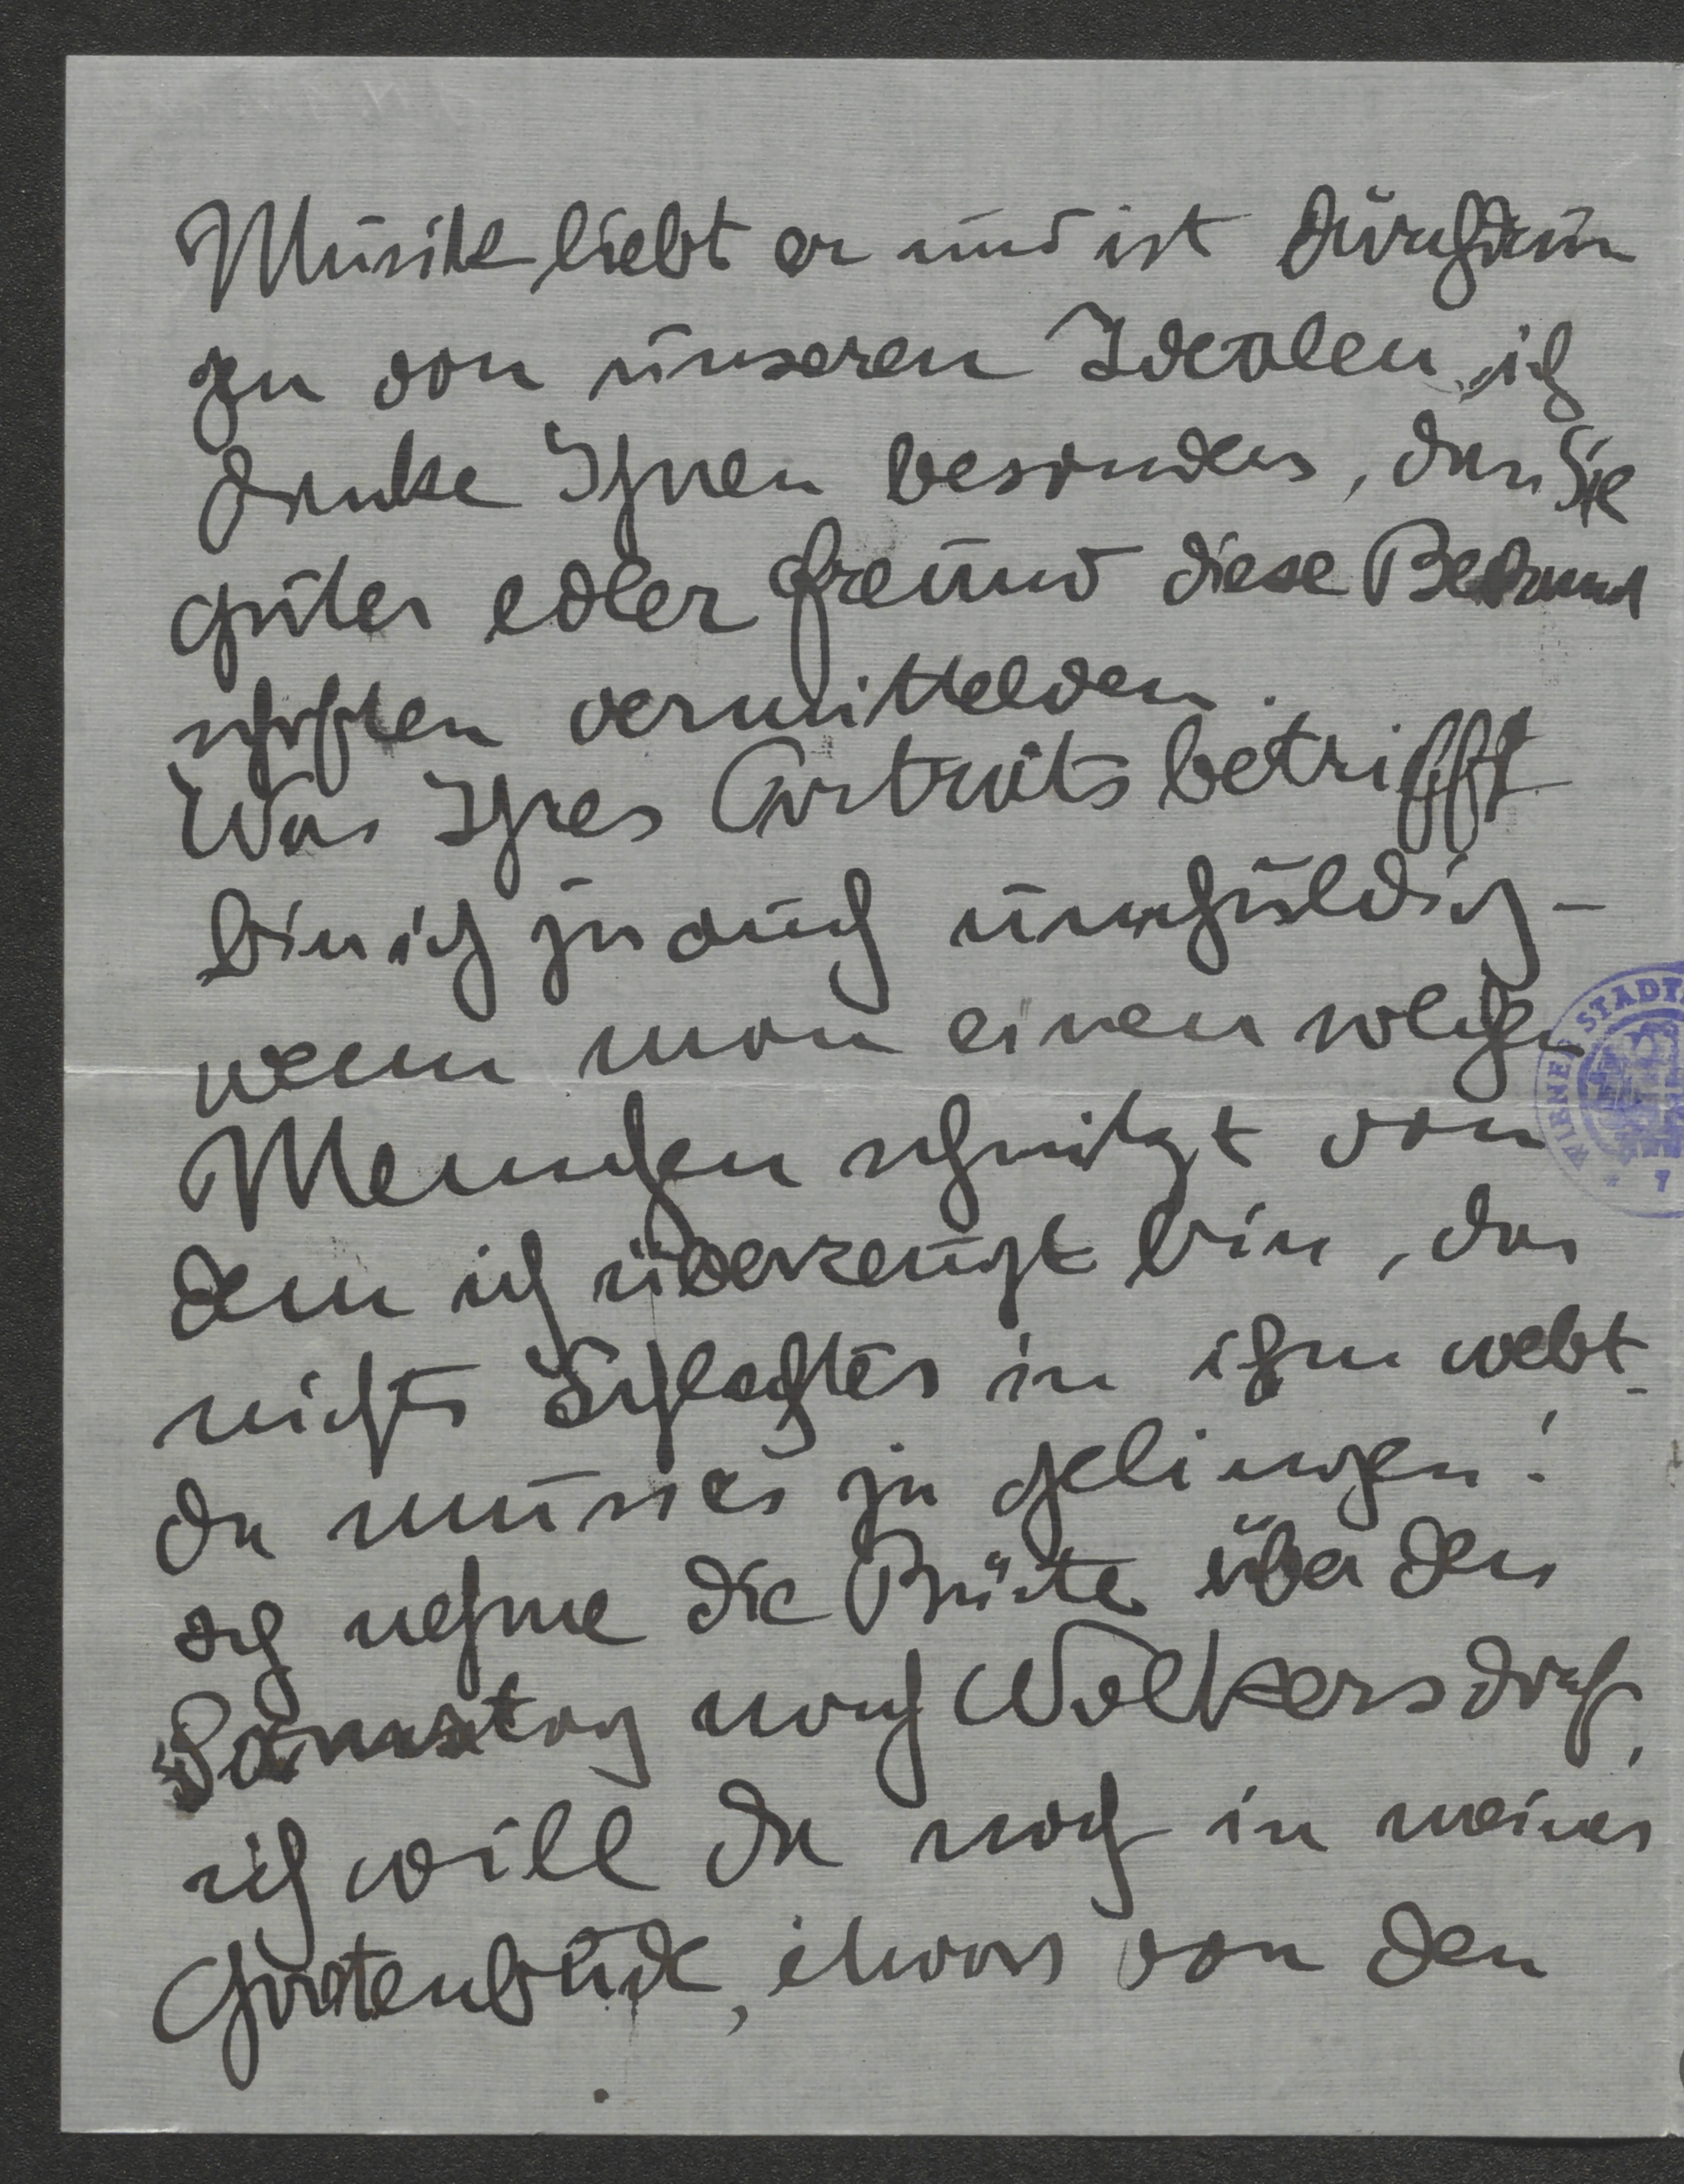 Musik liebt er und ist durchdrun
gen von unseren Idealen, ich
danke Ihnen besonders, dass Sie
guter edler Freund diese Bekannt
schaften vermittelden.
Was Ihres Portraits betrifft
bin ich ja auch unschuldig –
wenn man einen solchen
Menschen schnitzt von
dem ich überzeugt bin, das
nichts Schlechtes in ihm webt –
da muss es ja gelingen!
Ich nehme die Büste über den
Samstag nach Wolkersdorf,
ich will da noch in meiner
Gartenbude, etwas von den
WIENER STADT